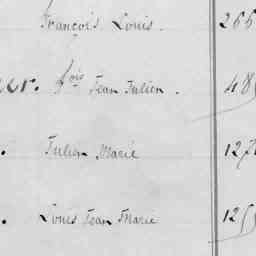 François Louis. 266
fois Jean Julien. 48
Julien Marie 127
Louis Jean Marie 125